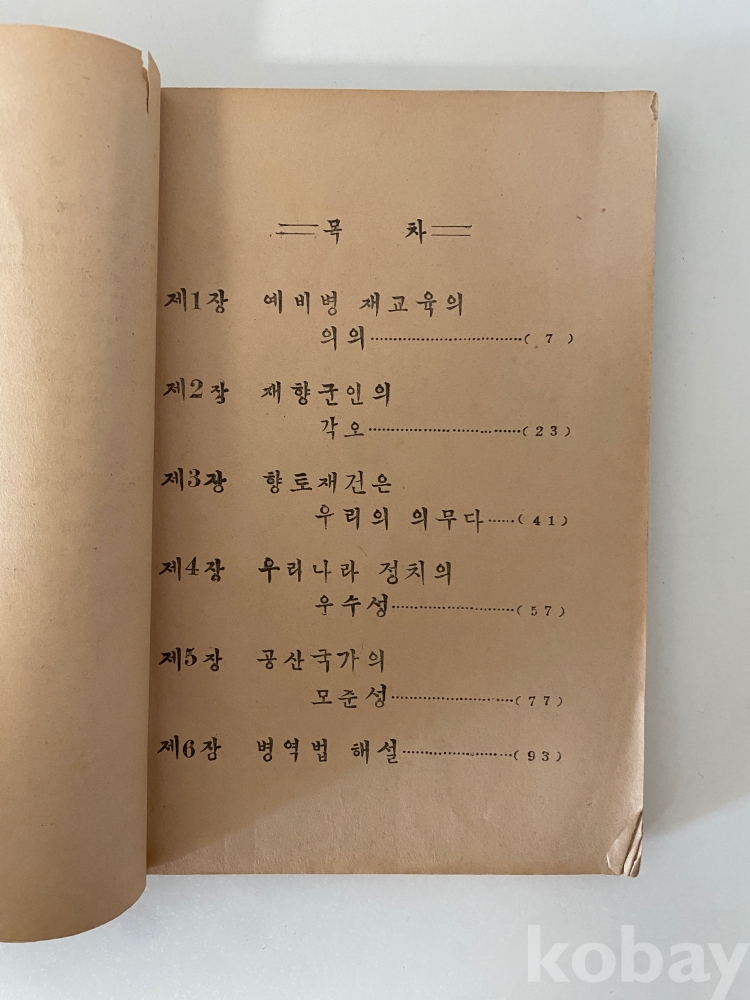 목 차
제1장 예비병 재교육의
의의……………………………( 7 )
제2장 재향군인의
각오……………………………(23)
제3장 향토재건은
우리의 의무다……(41)
제4장 우리나라 정치의
우수성……………………(57)
제5장 공산국가의
모준성……………………(77)
제6장 병역법 해설…………………(93)
kobay